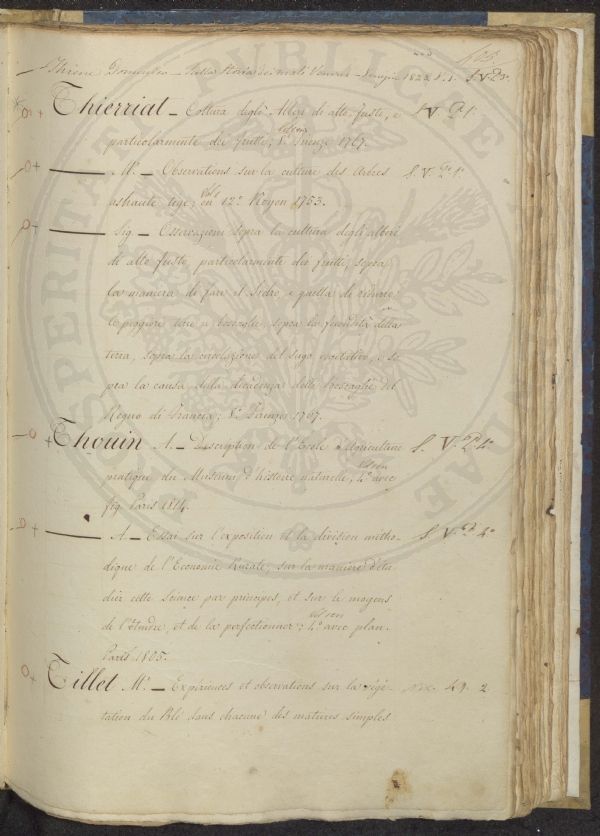 Thiene Domenico — Sulla storia dei mali Venerei — Venezia 1823
Thierriat — Coltura degli Alberi di alto fusto, e
particolarmente dei frutti; 8.° Firenze 1767.
M.r — Observations sur la culture des Arbres
ashaute tige; en 12.° Noyon 1753.
Sig. — Osservazioni sopra la cultura degli alberi
di alto fusto, particolarmente dei frutti; sopra
la maniera di fare il Sidro e quella di ridurre
le peggiori terre a boscaglie, sopra la fecondità della
terra, sopra la circolazione del sugo nutritivo, e so-
pra la causa della decadenza delle boscaglie del
Regno di Francia; 8.° Firenze 1767.
Thouin A. — Description de l'Ecole d'Agriculture S. V. 2.° 4.°
pratique du Museum d'histoire naturelle; 4.° avec
fig. Paris 1814.
A — Essai sur l'exposition et la division métho-
dique de l'Economie Rurale, sur la manière d'étu-
dier cette science par principes, et sur le moyens
de l'étendre, et de la perfectionner; 4.° avec plan.
Paris 1805.
Tillet M.r — Expériences et observations sur la végé-
tation du Blé dans chacune des matieres simples
PUBLICAE
PROSPERITATI